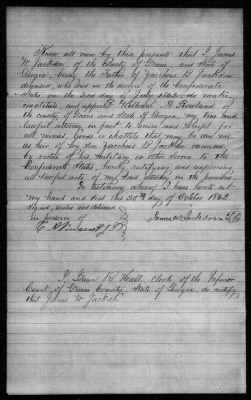 Know all men by these presents that I James
W. Jackson of the County of Green and State of
Georgia being the Father of Zacheus B Jackson
deceased, who was in the service of the Confederate
States on the 2nd day of July 1862 do make
constitute and appoint Willard B Rowland of
the county of Greene and State of Georgia my true and
lawful attorney in fact to receive and receipt for
all monies goods or chattels that may be due me
as heir of my son Zacheus B Jackson deceased
by virtue of his military or other service to the
Confederate States, hereby ratifying and confirming
all lawful acts of my said attorney in the premises
In testimony whereof I have hereto set
my hand and seal this 25th day of October 1862
Signed, sealed and delivered
in presence of James W Jackson
I, Hall, clerk of the Inferior
Court of Green County, State of Georgia do certify
that James W. Jackson